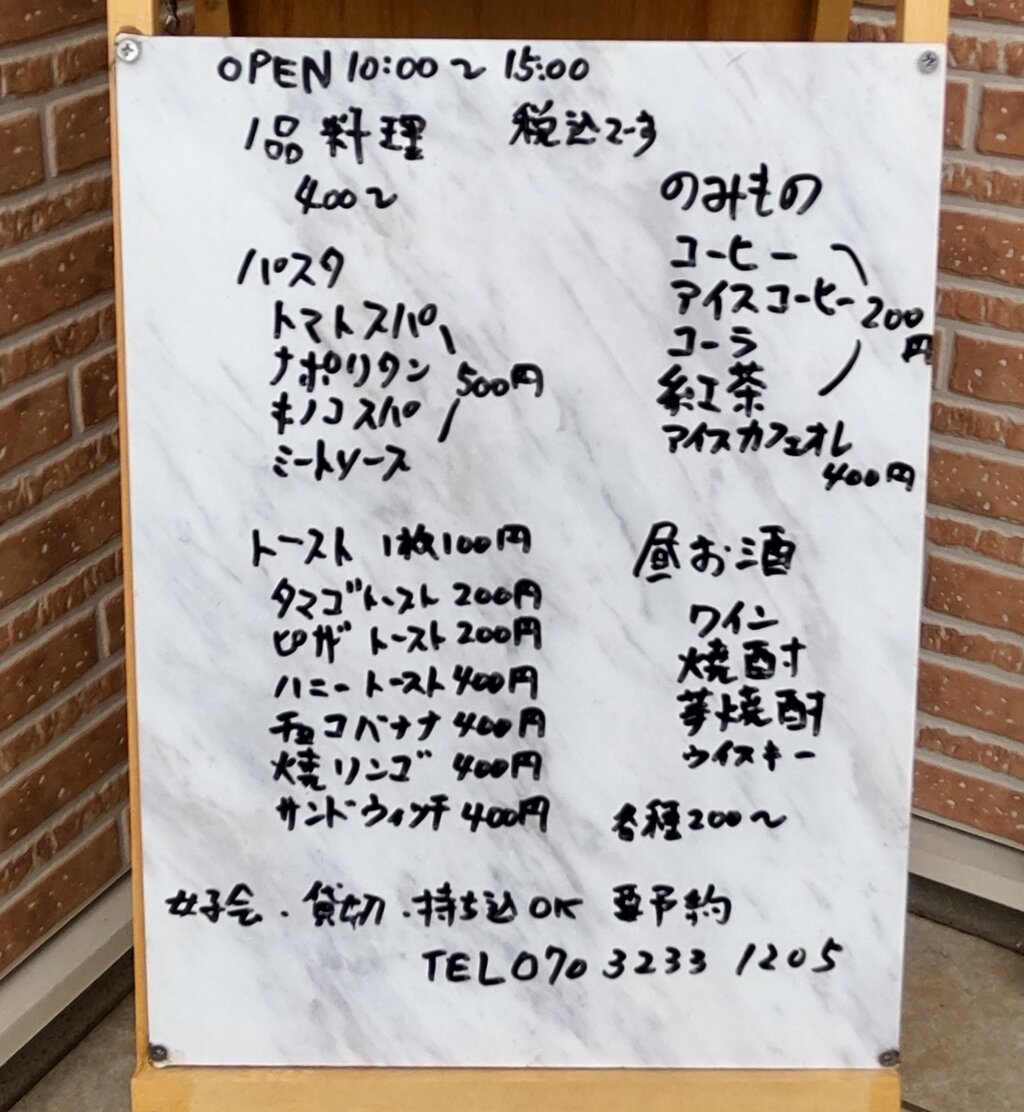 OPEN 10:00〜15:00
1品料理 税込でーす
400〜
パスタ
トマトスパ
ナポリタン
キノコスパ
ミートソース
500円
トースト 1枚100円
タマゴトースト 200円
ピザトースト 200円
ハニートースト 400円
チョコバナナ 400円
焼リンゴ 400円
サンドウィッチ 400円
のみもの
コーヒー
アイスコーヒー
コーラ
紅茶
200円
アイスカフェオレ
400円
昼お酒
ワイン
焼酎
芋焼酎
ウイスキー
各種200〜
女子会・貸切・持ち込OK 要予約
TEL 070 3233 1205